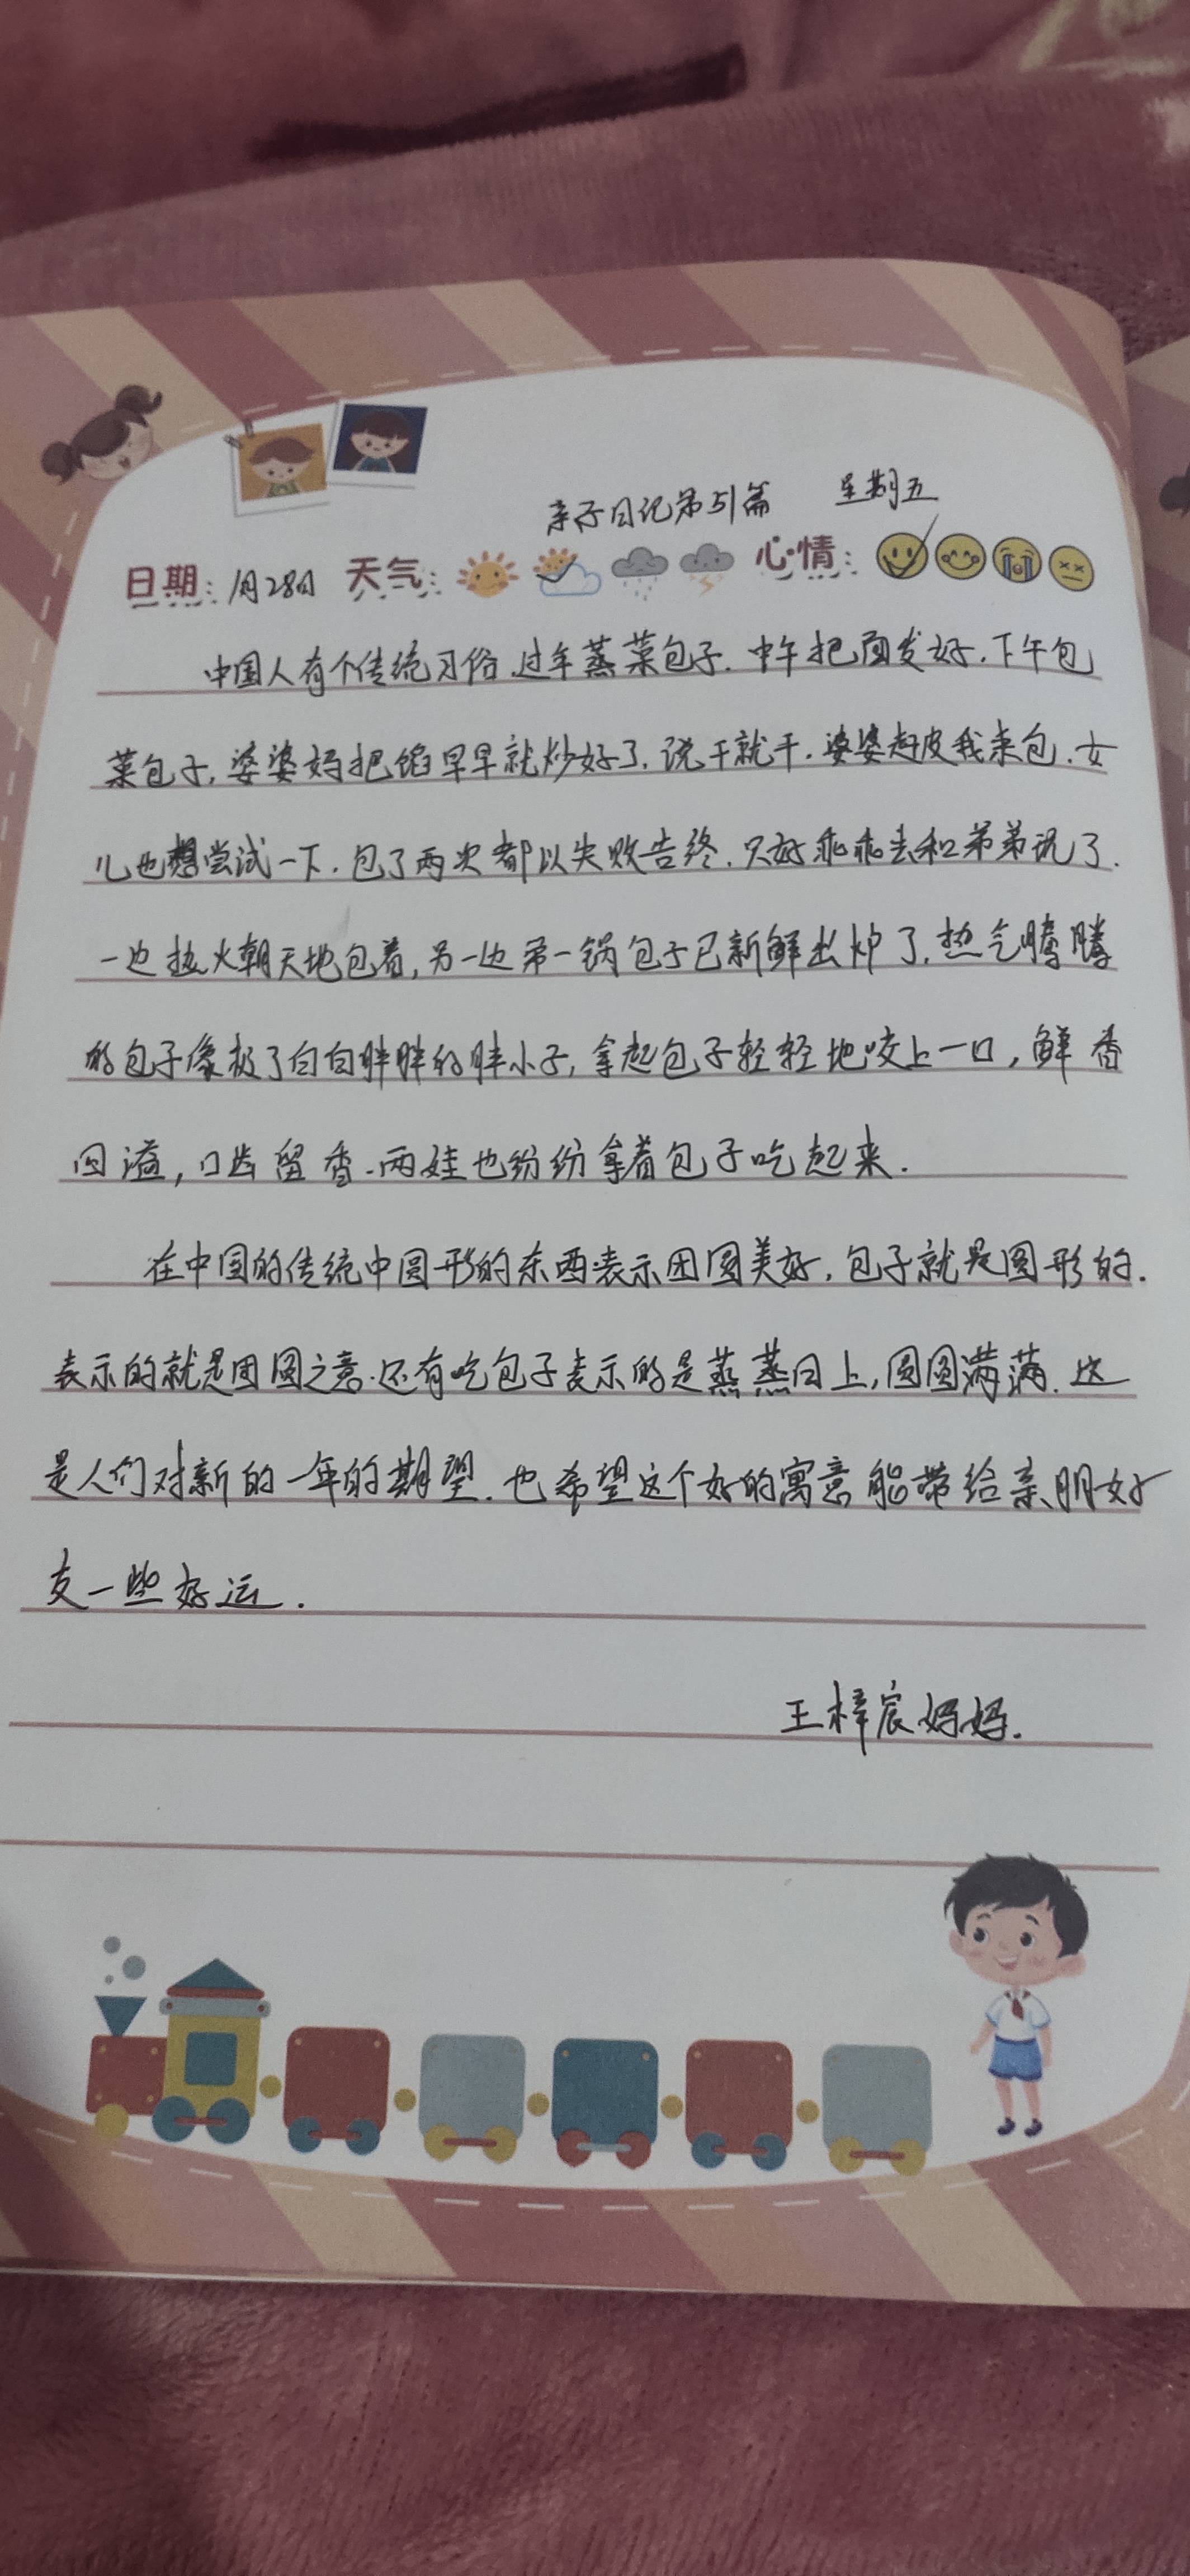 亲子日记第51篇 星期五
日期: 1月28日 天气: 心情:
中国人有个传统习俗.过年蒸菜包子.中午把面发好.下午包
菜包子,婆婆妈把馅早早就炒好了.说干就干.婆婆赶皮我来包.女
儿也想尝试一下.包了两次都以失败告终.只好乖乖去和弟弟玩了.
一边热火朝天地包着,另一边第一锅包子已新鲜出炉了.热气腾腾
的包子像极了白白胖胖的胖小子,拿起包子轻轻地咬上一口,鲜香
四溢,口齿留香.两娃也纷纷拿着包子吃起来.
在中国的传统中圆形的东西表示团圆美好,包子就是圆形的.
表示的就是团圆之意.还有吃包子表示的是蒸蒸日上,圆圆满满.这
是人们对新的一年的期望.也希望这个好的寓意能带给亲朋好
友一些好运.
王梓宸妈妈.